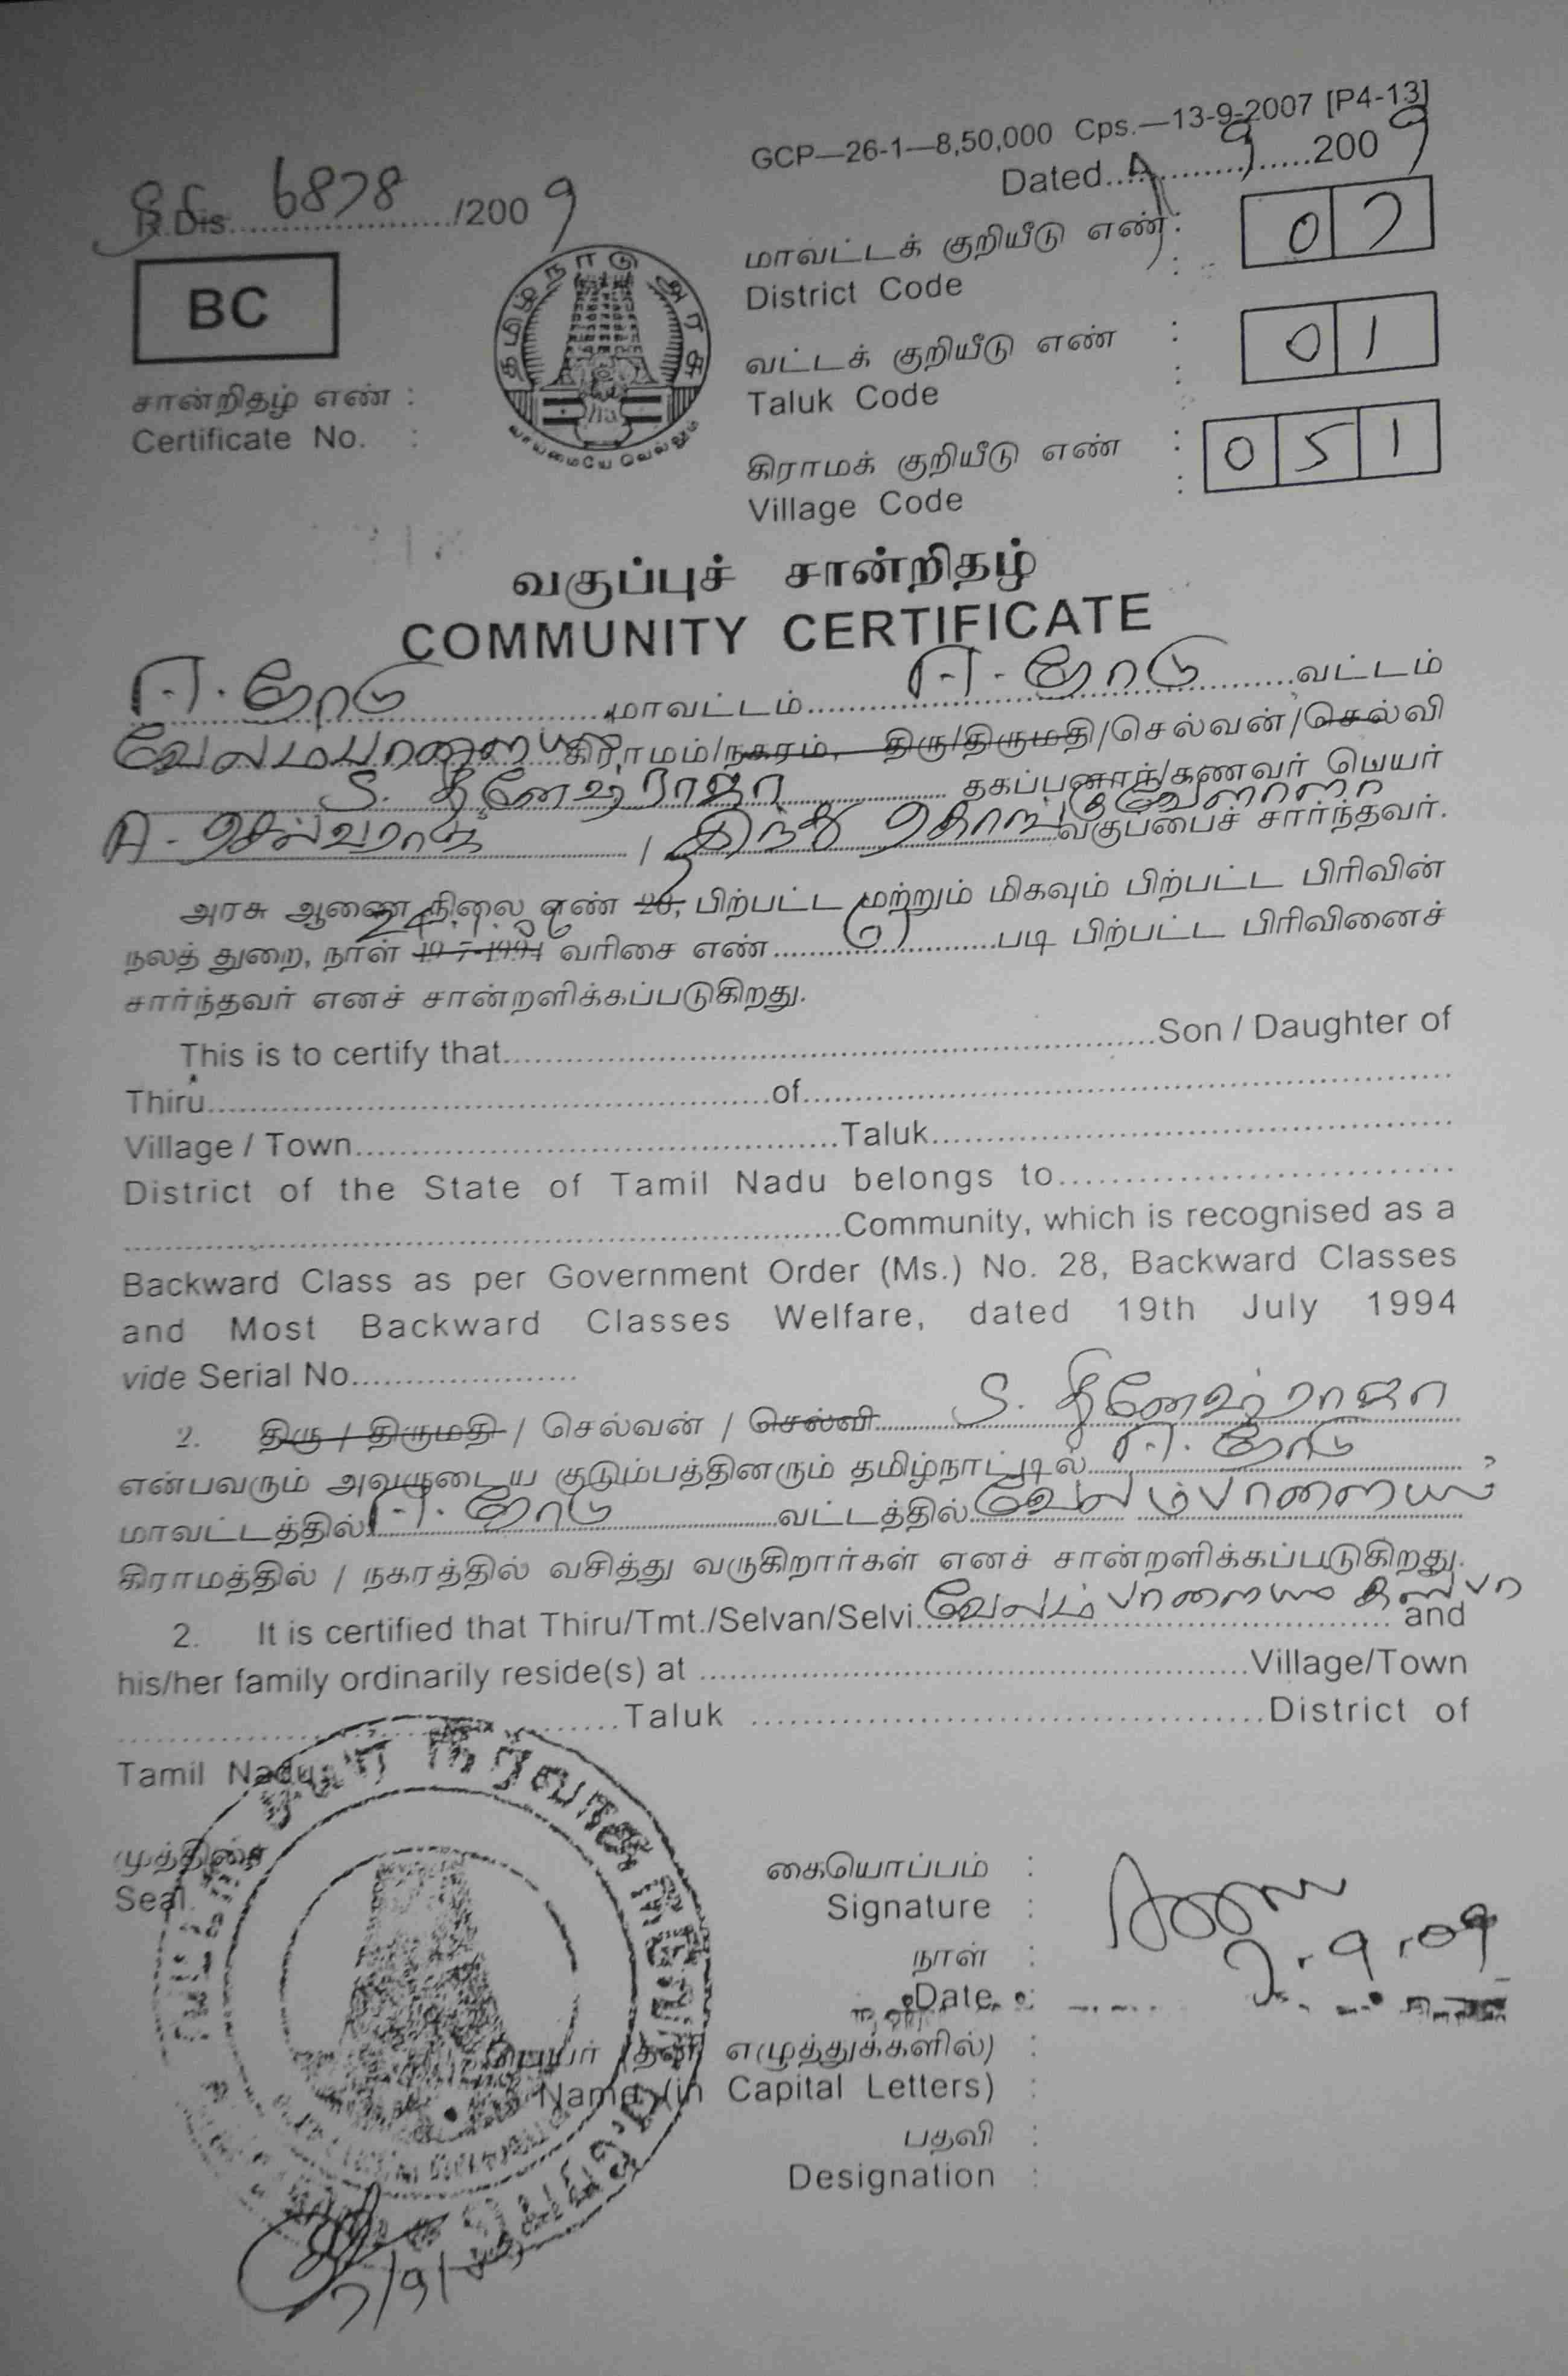 GCP—26-1—8,50,000 Cps.—13-9-2007 [P4-13]
R.Dis. 6878 /2009
Dated 9 2009
BC
தமிழ்நாடு அரசு
வாய்மையே வெல்லும்
மாவட்டக் குறியீடு எண் : 07
District Code :
வட்டக் குறியீடு எண் : 01
Taluk Code :
சான்றிதழ் எண் :
Certificate No. :
கிராமக் குறியீடு எண் : 051
Village Code :
வகுப்புச் சான்றிதழ்
COMMUNITY CERTIFICATE
ஈ.ரோடு மாவட்டம் ஈ.ரோடு வட்டம்
வேலம்பாளையம் கிராமம்/நகரம், திரு/திருமதி/செல்வன்/செல்வி
S. தீனேஷ்ராஜா தகப்பனார்/கணவர் பெயர்
A. செல்வராசு / இந்து கொங்கு வேளாளர் வகுப்பைச் சார்ந்தவர்.
அரசு ஆணை நிலை எண் 28, பிற்பட்ட மற்றும் மிகவும் பிற்பட்ட பிரிவின்
நலத் துறை, நாள் 19-7-1994 வரிசை எண் படி பிற்பட்ட பிரிவினைச்
சார்ந்தவர் எனச் சான்றளிக்கப்படுகிறது.
This is to certify that Son / Daughter of
Thiru of
Village / Town Taluk
District of the State of Tamil Nadu belongs to
Community, which is recognised as a
Backward Class as per Government Order (Ms.) No. 28, Backward Classes
and Most Backward Classes Welfare, dated 19th July 1994
vide Serial No.
2. திரு / திருமதி / செல்வன் / செல்வி S. தீனேஷ்ராஜா
என்பவரும் அவருடைய குடும்பத்தினரும் தமிழ்நாட்டில் ஈ.ரோடு
மாவட்டத்தில் ஈ.ரோடு வட்டத்தில் வேலம்பாளையம்
கிராமத்தில் / நகரத்தில் வசித்து வருகிறார்கள் எனச் சான்றளிக்கப்படுகிறது.
2. It is certified that Thiru/Tmt./Selvan/Selvi வேலம்பாளையம் and
his/her family ordinarily reside(s) at Village/Town
Taluk District of
Tamil Nadu.
முத்திரை
Seal
கையொப்பம் :
Signature :
நாள் : 7.9.09
Date :
பெயர் (தனி எழுத்துக்களில்) :
Name (in Capital Letters) :
பதவி :
Designation :